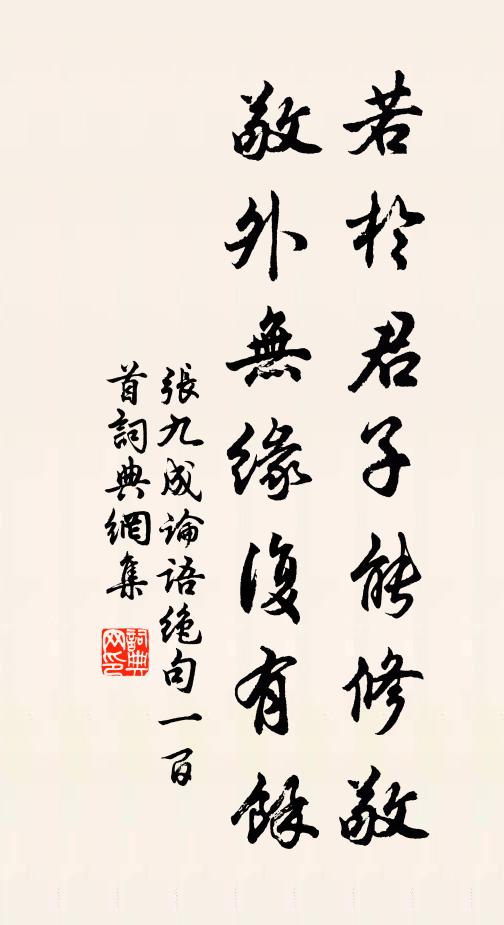 若於君子能修敬
敬外無緣復有餘
張九成論語絶句一百
首詞典網集
詞典網印